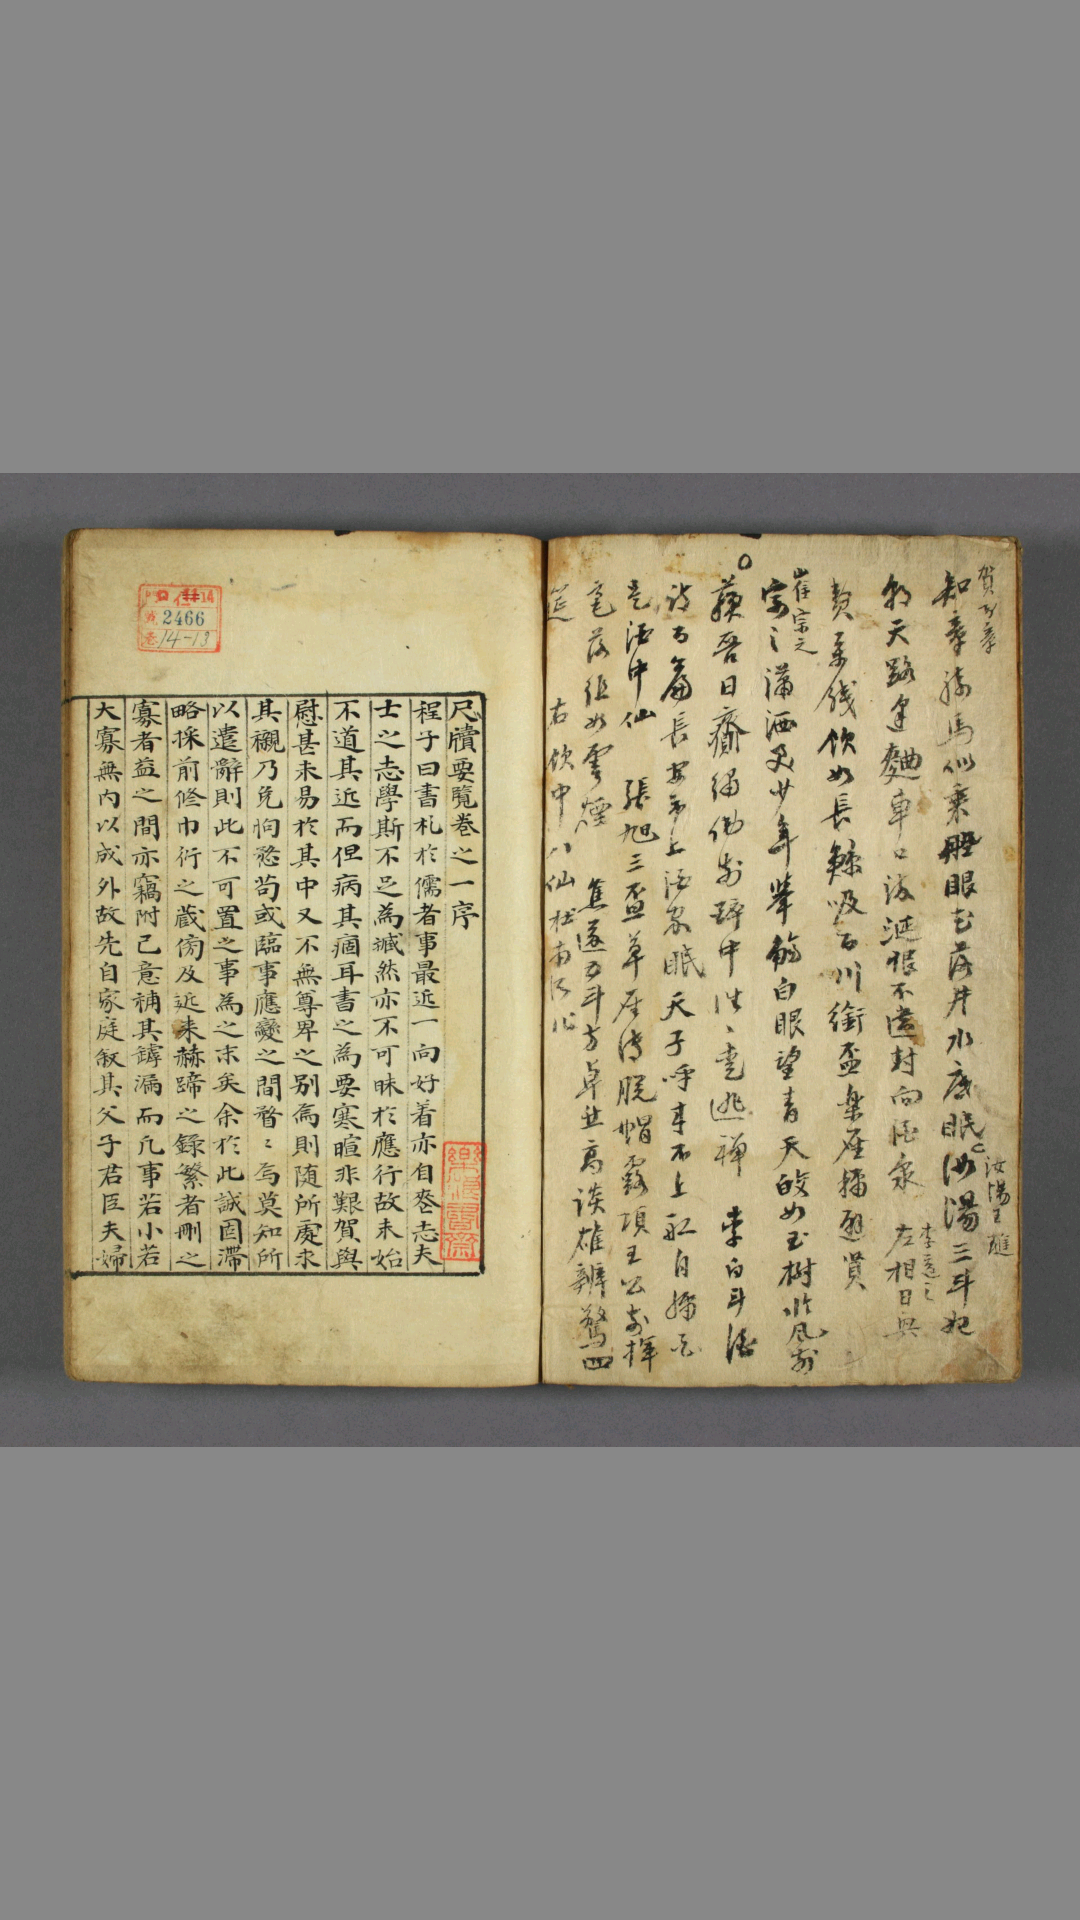 賀知章
知章騎馬似乘船眼花落井水底眠汝陽三斗始
汝陽王璡
朝天路逢麴車口流涎恨不遣封向酒泉
李適之
左相日興
費萬錢飲如長鯨吸百川銜盃樂聖稱避賢
崔宗之
宗之瀟洒美少年擧觴白眼望靑天皎如玉樹臨風前
蘇晉日齋繡佛前醉中往〻愛逃禪 李白斗酒
詩百篇長安市上酒家眠天子呼來不上船自稱臣
是酒中仙 張旭三盃草聖傳脫帽露頂王公前揮
毫落紙如雲煙 焦遂五斗方卓然高談雄辨驚四
筵
右飮中八仙 杜甫
尺牘要覽卷之一序
程子曰書札於儒者事最近一向好着亦自䘮志夫
士之志學斯不足為誠然亦不可昧於應行故未始
不道其近而但病其痼耳書之為要寒暄非艱賀與
慰甚未易於其中又不無尊卑之別焉則随所處求
其襯乃免恂愗苟或臨事應變之間瞀〻焉莫知所
以遣辭則此不可置之事為之末矣余於此誠固滯
略採前修巾衍之蔵傍及近来赫蹄之錄繁者刪之
寡者益之間亦竊附己意補其罅漏而凡事若小若
大寡無內以成外故先自家庭叙其父子君臣夫婦
樂浪書齋
2466
14-13